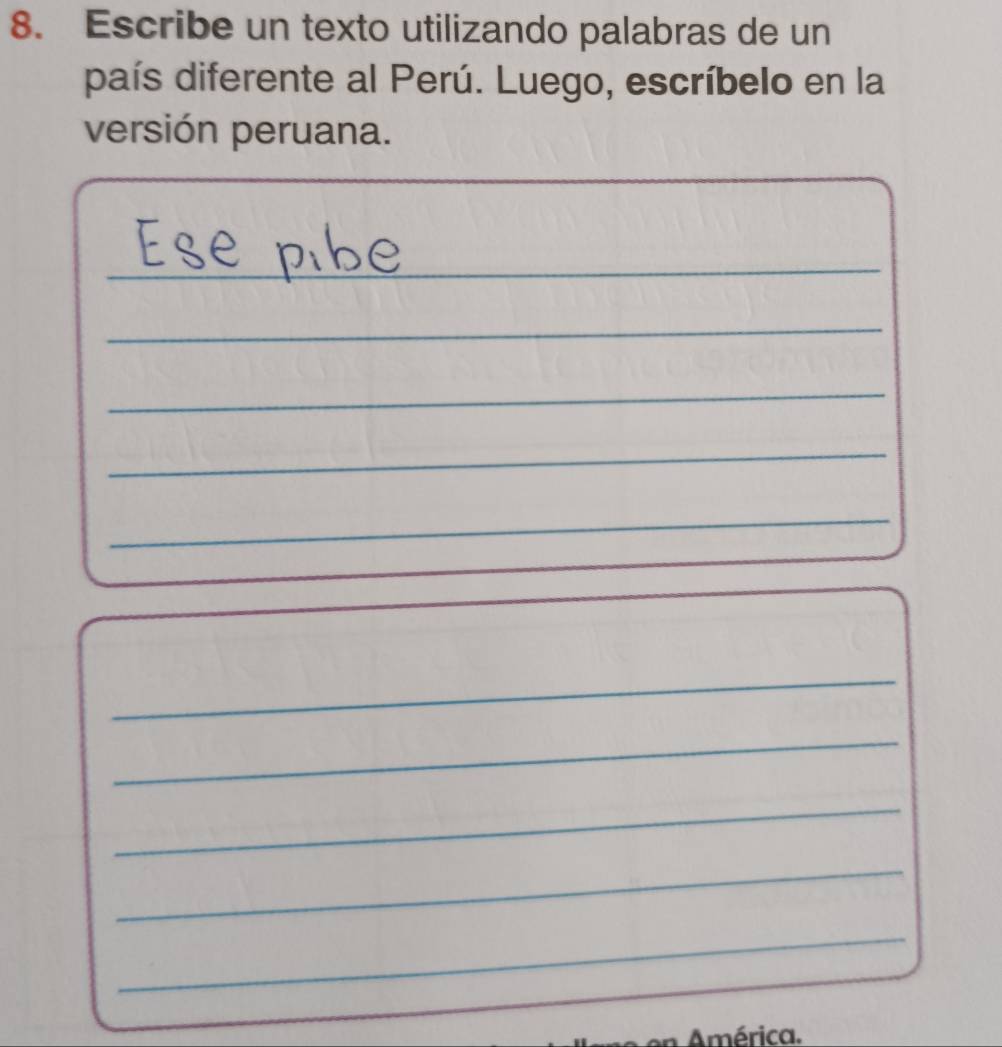 8. Escribe un texto utilizando palabras de un
país diferente al Perú. Luego, escríbelo en la
versión peruana.
Ese pibe
en América.